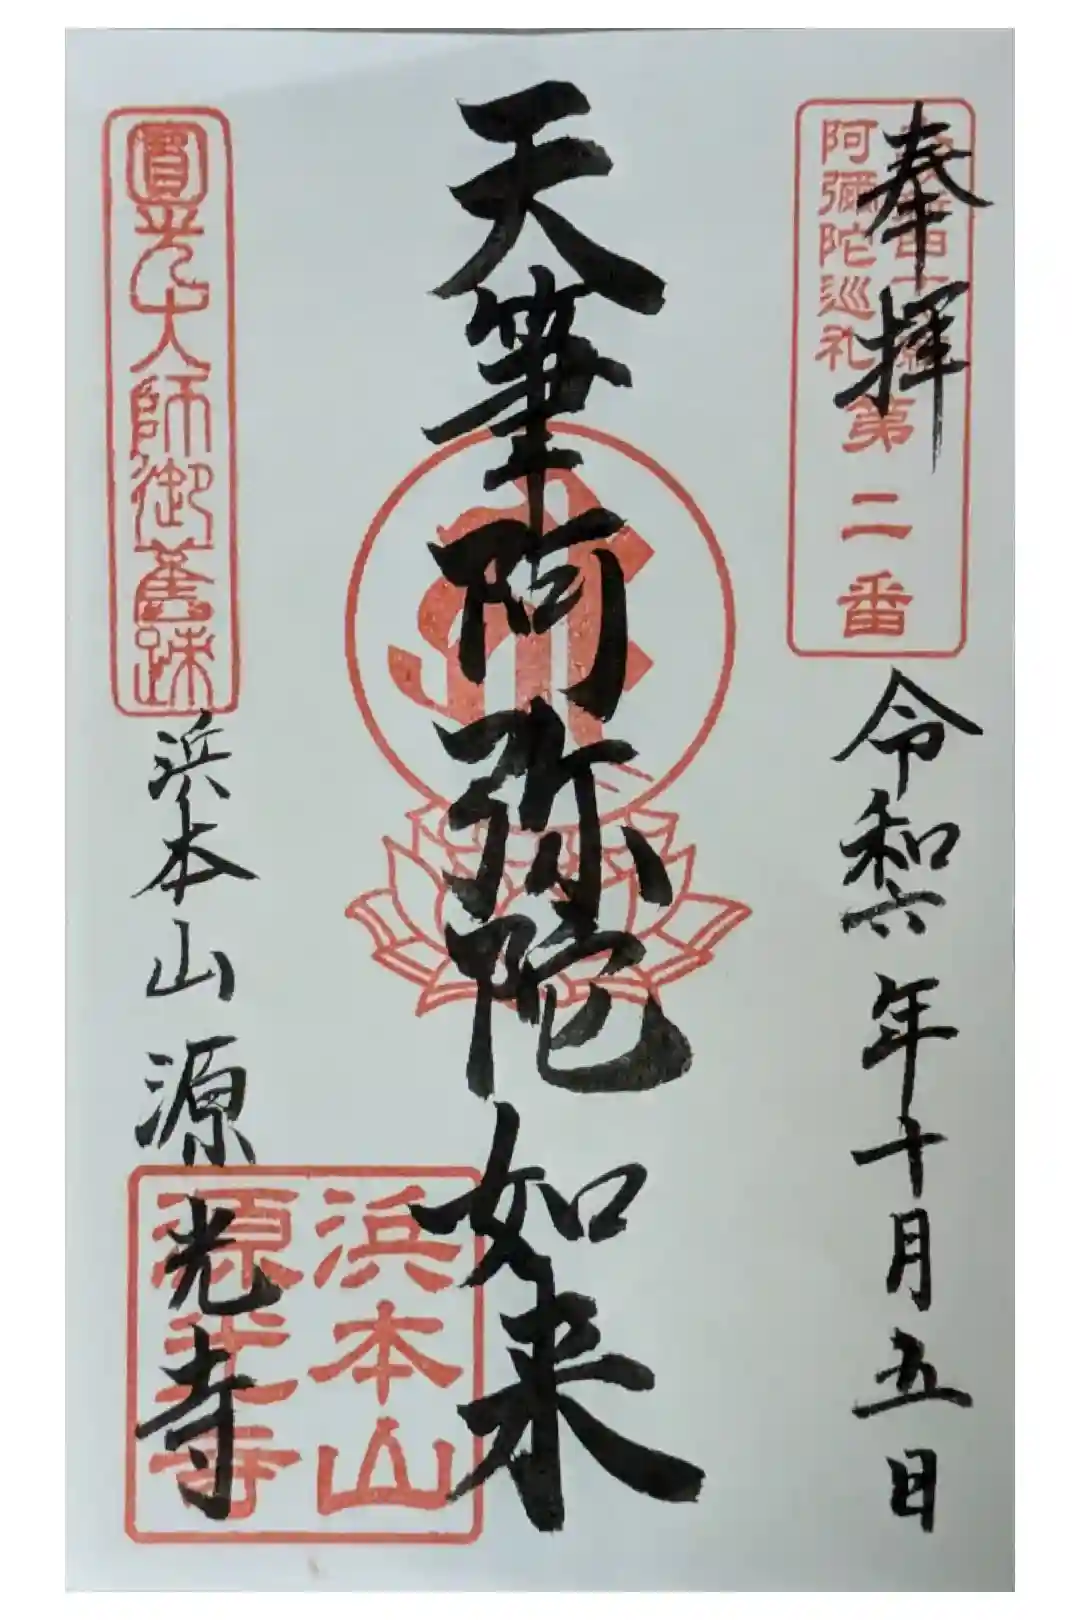 奉拝
阿彌陀巡礼
第二番
令和六年十月五日
天筆阿弥陀如来
圓光大師御舊跡
浜本山源光寺
浜本山
源光寺